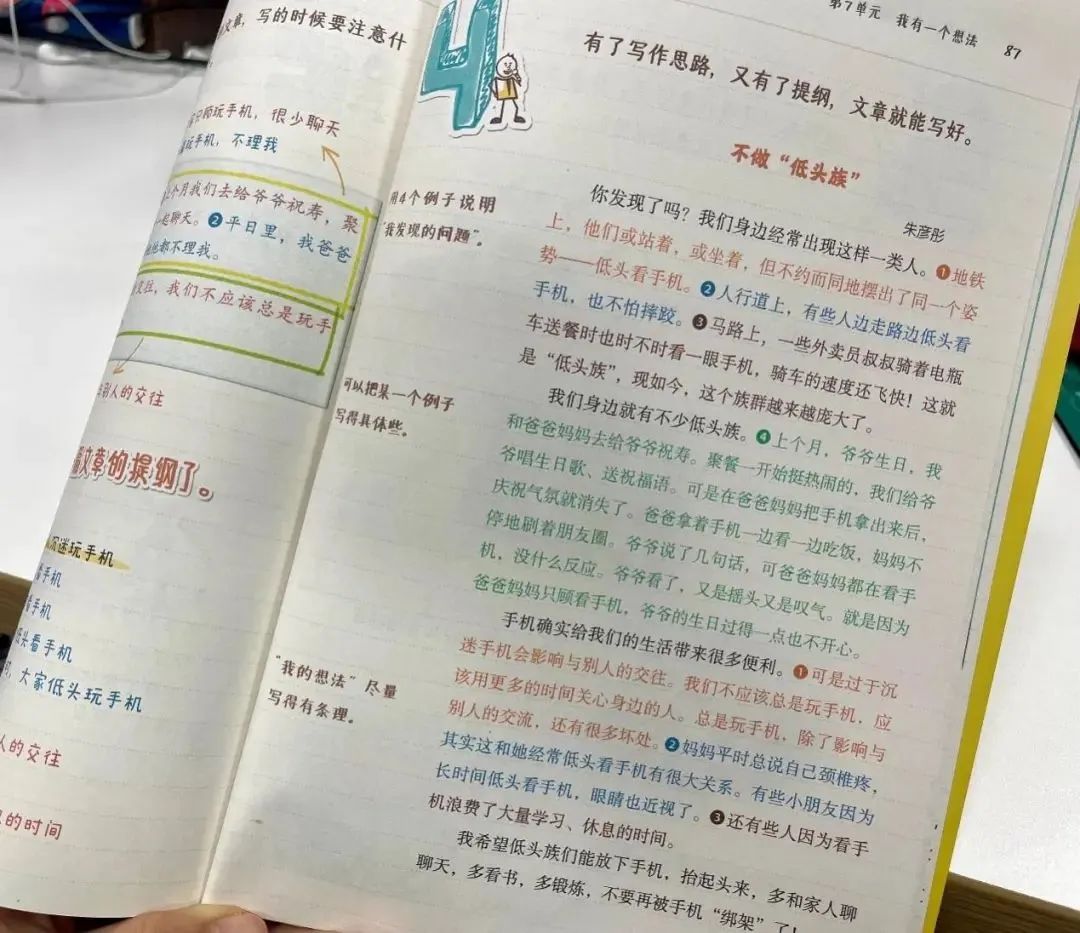 文章，写的时候要注意什
师玩手机，很少聊天
玩手机，不理我
个月我们去给爷爷祝寿，聚
起聊天。❷平日里，我爸爸
都不理我。
，我们不应该总是玩手
别人的交往
文章的提纲了。
沉迷玩手机
手机
看手机
头看手机
，大家低头玩手机
人的交往
的时间
第7单元 我有一个想法 87
4
有了写作思路，又有了提纲，文章就能写好。
不做“低头族”
朱彦彤
用4个例子说明
“我发现的问题”。
可以把某一个例子
写得具体些。
“我的想法”尽量
写得有条理。
你发现了吗？我们身边经常出现这样一类人。❶地铁
上，他们或站着，或坐着，但不约而同地摆出了同一个姿
势——低头看手机。❷人行道上，有些人边走路边低头看
手机，也不怕摔跤。❸马路上，一些外卖员叔叔骑着电瓶
车送餐时也时不时看一眼手机，骑车的速度还飞快！这就
是“低头族”，现如今，这个族群越来越庞大了。
我们身边就有不少低头族。❹上个月，爷爷生日，我
和爸爸妈妈去给爷爷祝寿。聚餐一开始挺热闹的，我们给爷
爷唱生日歌、送祝福语。可是在爸爸妈妈把手机拿出来后，
庆祝气氛就消失了。爸爸拿着手机一边看一边吃饭，妈妈不
停地刷着朋友圈。爷爷说了几句话，可爸爸妈妈都在看手
机，没什么反应。爷爷看了，又是摇头又是叹气。就是因为
爸爸妈妈只顾看手机，爷爷的生日过得一点也不开心。
手机确实给我们的生活带来很多便利。❶可是过于沉
迷手机会影响与别人的交往。我们不应该总是玩手机，应
该用更多的时间关心身边的人。总是玩手机，除了影响与
别人的交流，还有很多坏处。❷妈妈平时总说自己颈椎疼，
其实这和她经常低头看手机有很大关系。有些小朋友因为
长时间低头看手机，眼睛也近视了。❸还有些人因为看手
机浪费了大量学习、休息的时间。
我希望低头族们能放下手机，抬起头来，多和家人聊
聊天，多看书，多锻炼，不要再被手机“绑架”了！